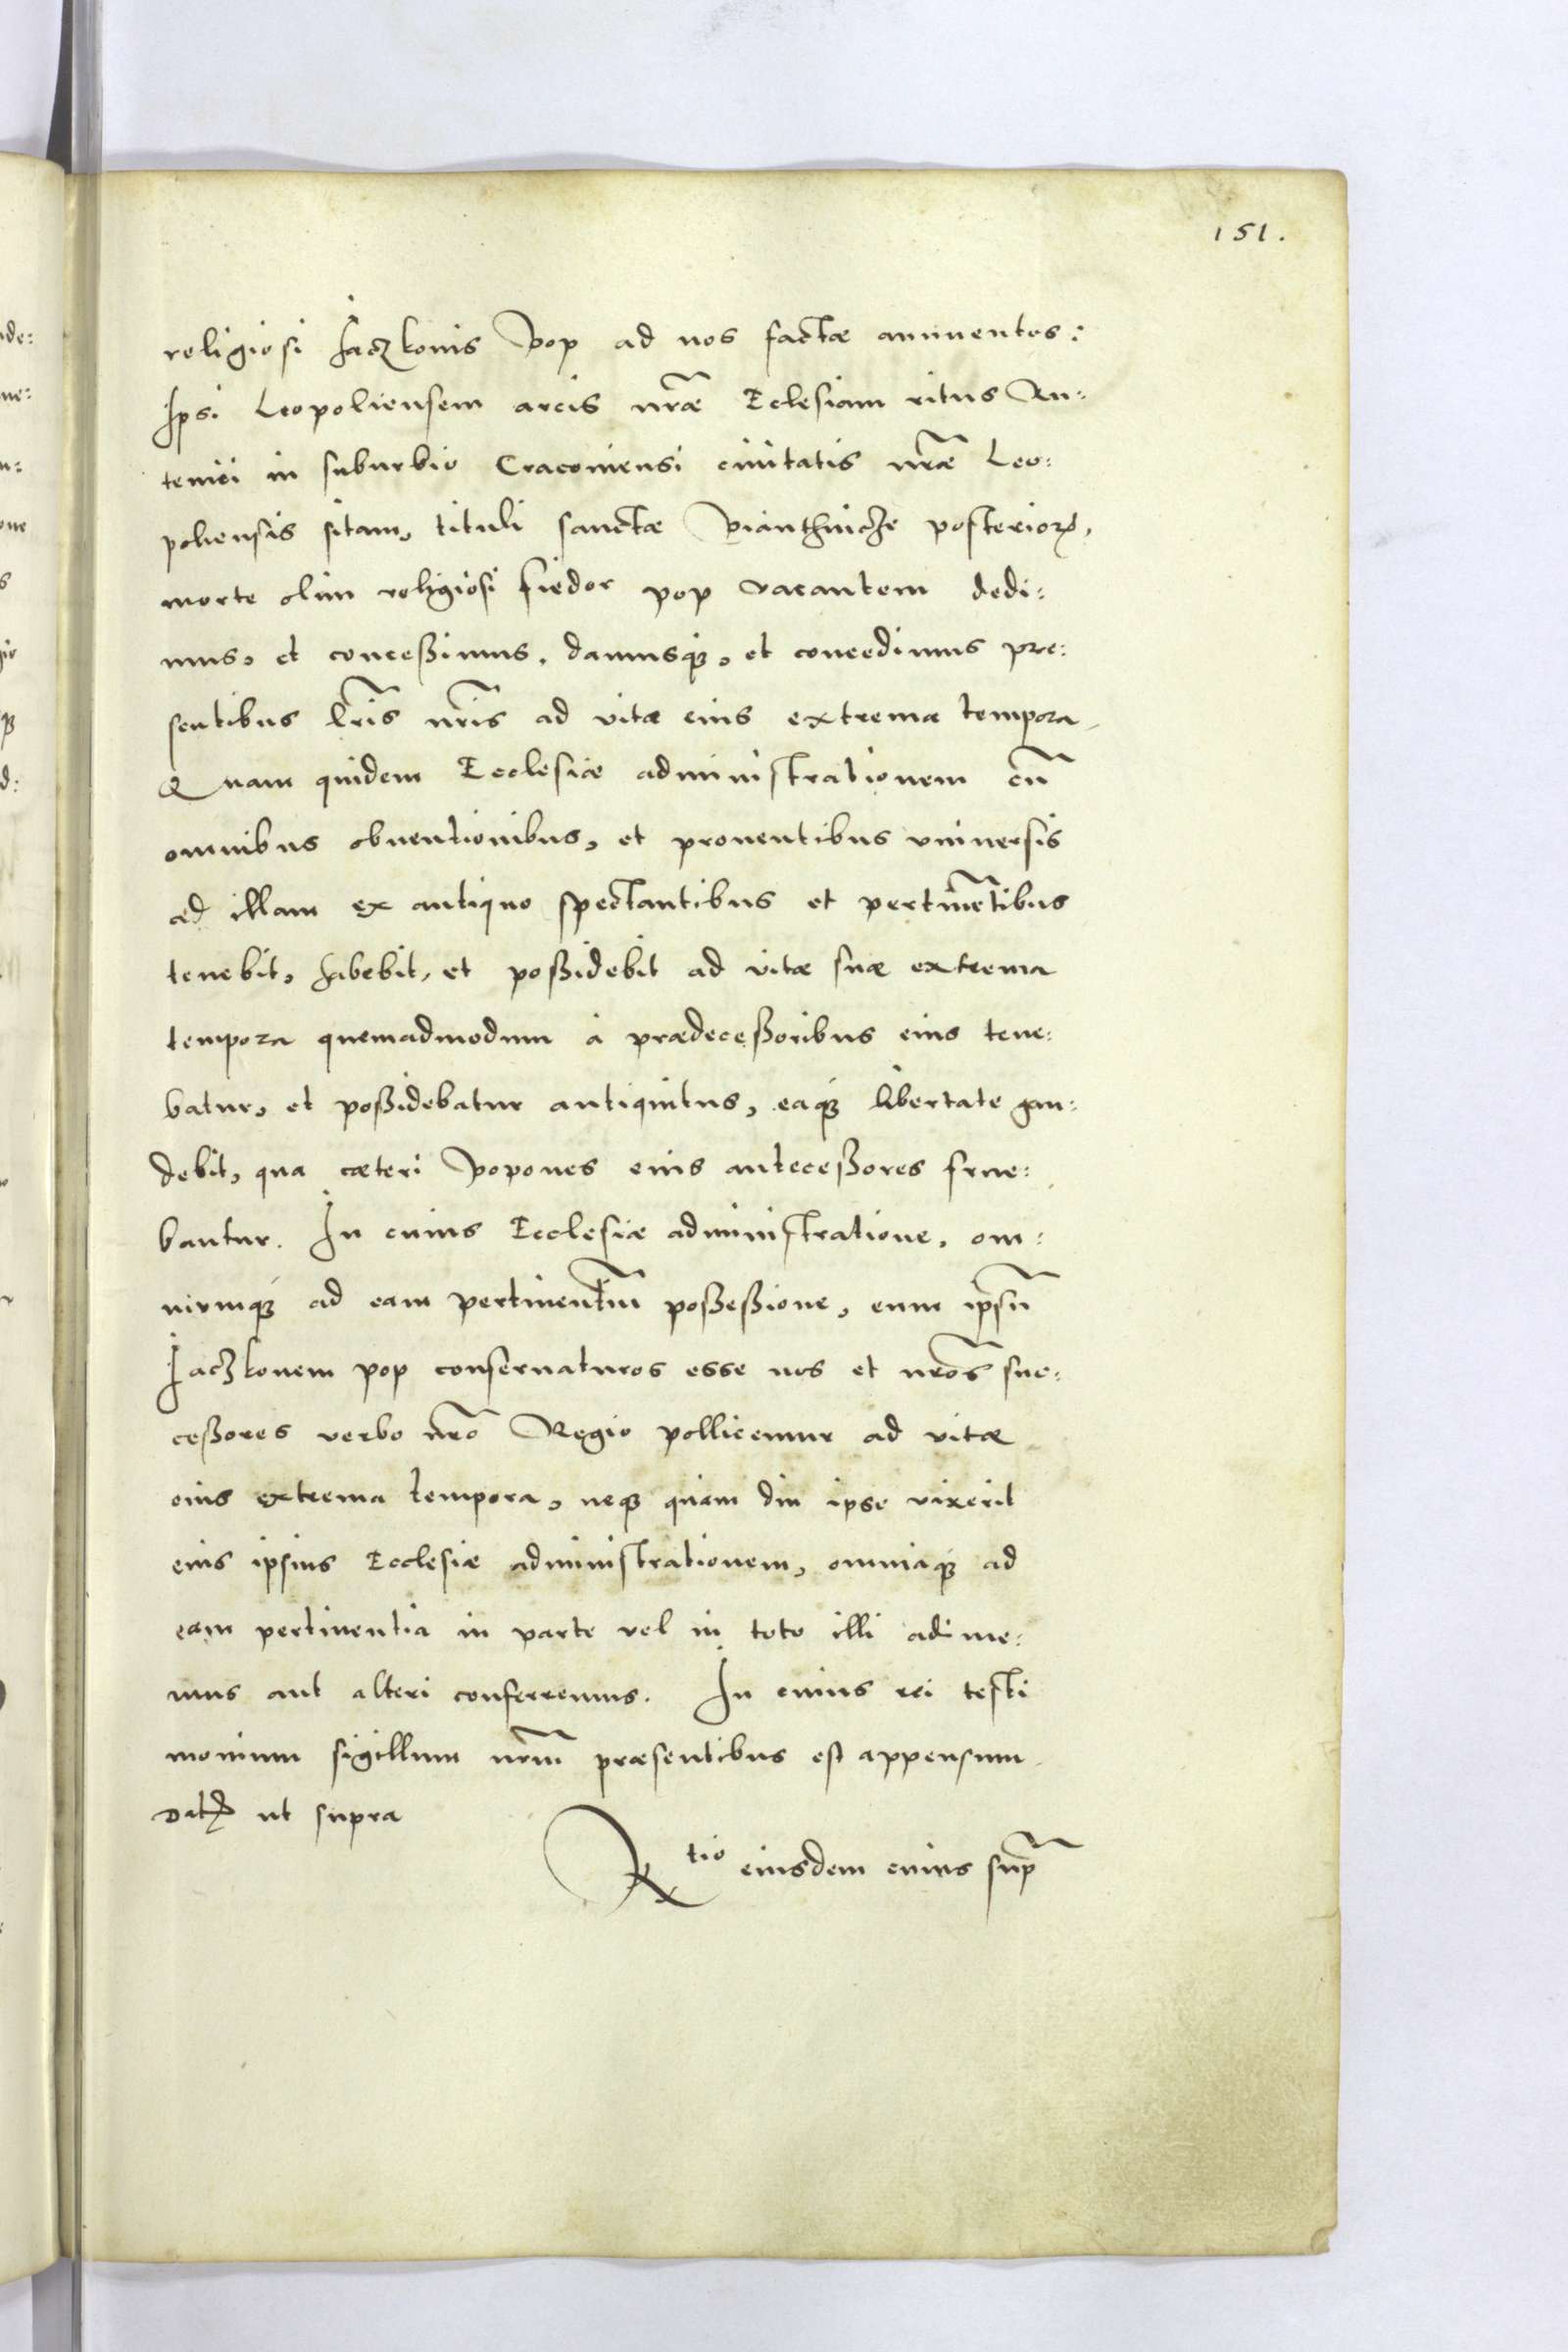 151.
religiosi Jaczkonis Pop ad nos factæ annuentes:
Ipsi Leopoliensem arcis nræ Eclesiam ritus Ru:
tenici in suburbio Cracouiensi ciuitatis nræ Leo:
poliensis sitam, tituli sanctæ Pianthnicze posterior,
morte olim religiosi Fiedor pop vacantem dedi:
mus, et conceßimus, damusq3, et concedimus pre:
sentibus lris nris ad vitæ eius extrema tempora
Quam quidem Ecclesiæ administrationem cu
omnibus obuentionibus, et prouentibus vniuersis
ad illam ex antiquo spectantibus et pertinetibus
tenebit, habebit, et poßidebit ad vitæ suæ extrema
tempora quemadmodum à prædeceßoribus eius tene:
batur, et poßidebatur antiquitus, eaq3 libertate gau:
debit, qua cæteri Popones eius anteceßores frue:
bantur. In cuius Ecclesiæ administratione, om:
niumq3 ad eam pertinentium poßeßione, eum ipsu
Jaczkonem pop conseruaturos esse nos et nros suc:
ceßores verbo nro Regio pollicemur ad vitæ
eius extrema tempora, neq3 quam diu ipse vixerit
eius ipsius Ecclesiæ administrationem, omniaq3 ad
eam pertinentia in parte vel in toto illi adime:
mus aut alteri conferremus. In cuius rei testi
monium sigillum nrm præsentibus est appensum
Dat ut supra
Rtio eiusdem cuius sup